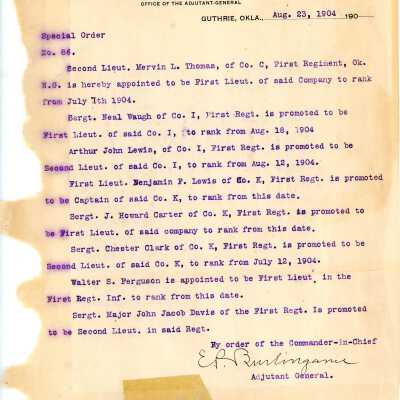 OFFICE OF THE ADJUTANT-GENERAL
GUTHRIE, OKLA., Aug. 23, 1904 190
Special Order
No. 86.
Second Lieut. Mervin L. Thomas, of Co. C, First Regiment, Ok.
N.G. is hereby appointed to be First Lieut. of said Company to rank
from July 7th 1904.
Sergt. Neal Waugh of Co. I, First Regt. is promoted to be
First Lieut. of said Co. I, to rank from Aug. 18, 1904
Arthur John Lewis, of Co. I, First Regt. is promoted to be
Second Lieut. of said Co. I, to rank from Aug. 12, 1904.
First Lieut. Benjamin F. Lewis of Co. K, First Regt. is promoted
to be Captain of said Co. K, to rank from this date.
Sergt. J. Howard Carter of Co. K, First Regt. is promoted to
be First Lieut. of said company to rank from this date.
Sergt. Chester Clark of Co. K, First Regt. is promoted to be
Second Lieut. of said Co. K, to rank from July 12, 1904.
Walter S. Ferguson is appointed to be First Lieut. in the
First Regt. Inf. to rank from this date.
Sergt. Major John Jacob Davis of the First Regt. Is promoted
to be Second Lieut. in said Regt.
By order of the Commander-in-Chief
E.P. Burlingame
Adjutant General.